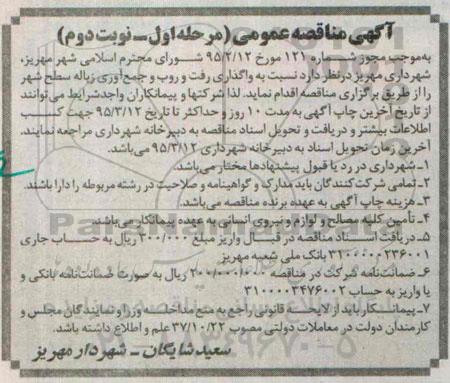 آگهی مناقصه عمومی (مرحله اول ـ نوبت دوم)
به‌موجب مجوز شماره ۱۲۱ مورخ ۹۵/۲/۱۲ شورای محترم اسلامی شهر مهریز،
شهرداری مهریز در نظر دارد نسبت به واگذاری رفت و روب و جمع‌آوری زباله سطح شهر
را از طریق برگزاری مناقصه اقدام نماید. لذا شرکتها و پیمانکاران واجد شرایط می‌توانند
از تاریخ آخرین چاپ آگهی به مدت ۱۰ روز و حداکثر تا تاریخ ۹۵/۳/۱۲ جهت کسب
اطلاعات بیشتر و دریافت و تحویل اسناد مناقصه به دبیرخانه شهرداری مراجعه نمایند.
آخرین زمان تحویل اسناد به دبیرخانه شهرداری ۹۵/۳/۱۲ می‌باشد.
۱ـ شهرداری در رد یا قبول پیشنهادها مختار می‌باشد.
۲ـ تمامی شرکت‌کنندگان باید مدارک و گواهینامه و صلاحیت در رشته مربوطه را دارا باشند.
۳ـ هزینه چاپ آگهی به عهده برنده مناقصه می‌باشد.
۴ـ تأمین کلیه مصالح و لوازم و نیروی انسانی به عهده پیمانکار می‌باشد.
۵ـ دریافت اسناد مناقصه در قبال واریز مبلغ ۳۰۰/۰۰۰ ریال به حساب جاری
۳۱۰۰۰۰۰۲۳۶۰۰۱ بانک ملی شعبه مهریز
۶ـ ضمانتنامه شرکت در مناقصه ۲۰۰/۰۰۰/۰۰۰ ریال به صورت ضمانت‌نامه بانکی و
یا واریز به حساب ۳۱۰۰۰۰۳۴۷۶۰۰۲
۷ـ پیمانکار باید از لایحه قانونی راجع به منع مداخله وزرا و نمایندگان مجلس و
کارمندان دولت در معاملات دولتی مصوب ۳۷/۱۰/۲۲ علم و اطلاع داشته باشد.
سعید شایگان ـ شهردار مهریز
ParsNamadData